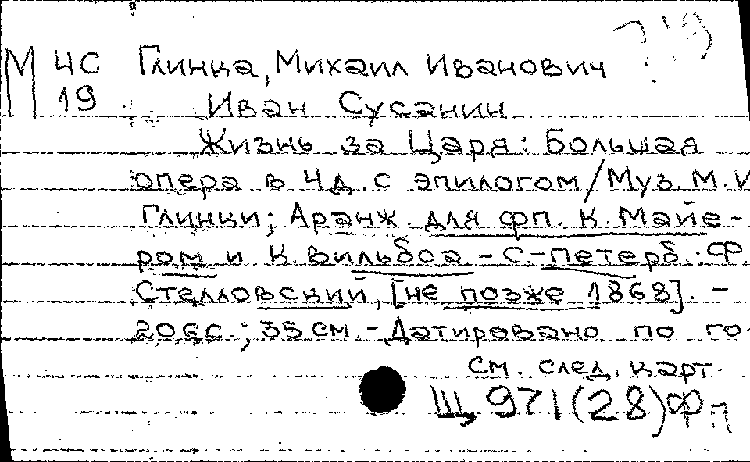 М 4С Глинка, Михаил Иванович
19 Иван Сусанин
Жизнь за Царя: Большая
опера в 4д. с эпилогом/Муз. М.И
Глинки; Аранж. для фп. К. Майе-
ром и К. Вильбоа. - С-Петерб.: Ф.
Стелловский, [не позже 1868]. -
206с.; 35см. - Датировано по го-
См. след. карт.
Щ 971(28)Фп